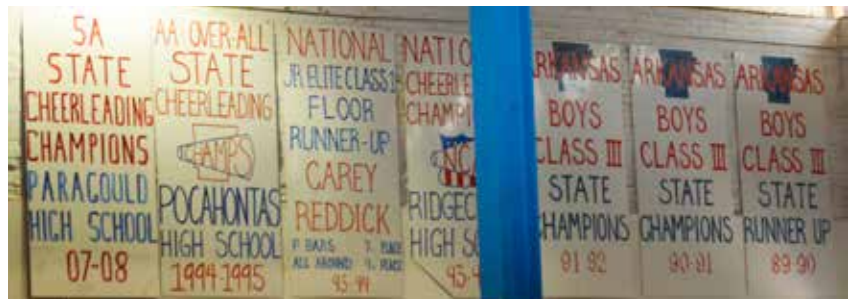 5A
STATE
CHEERLEADING
CHAMPIONS
PARAGOULD
HIGH SCHOOL
07-08
AA OVER-ALL
STATE
CHEERLEADING
CHAMPS
POCAHONTAS
HIGH SCHOOL
1994-1995
NATIONAL
JR. ELITE CLASS 1
FLOOR
RUNNER-UP
CAREY
REDDICK
P BARS PLACE
ALL AROUND PLACE
NATIO
CHEERLE
CHAMPI
NC
RIDGEC
HIGH S
ARKANSAS
BOYS
CLASS III
STATE
CHAMPIONS
91-92
ARKANSAS
BOYS
CLASS III
STATE
CHAMPIONS
90-91
ARKANSAS
BOYS
CLASS III
STATE
RUNNER UP
89-90